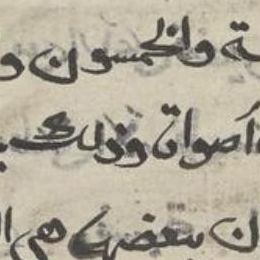 ة والخمسون و
أصوات وذلك ب
ن بعضها هى ال